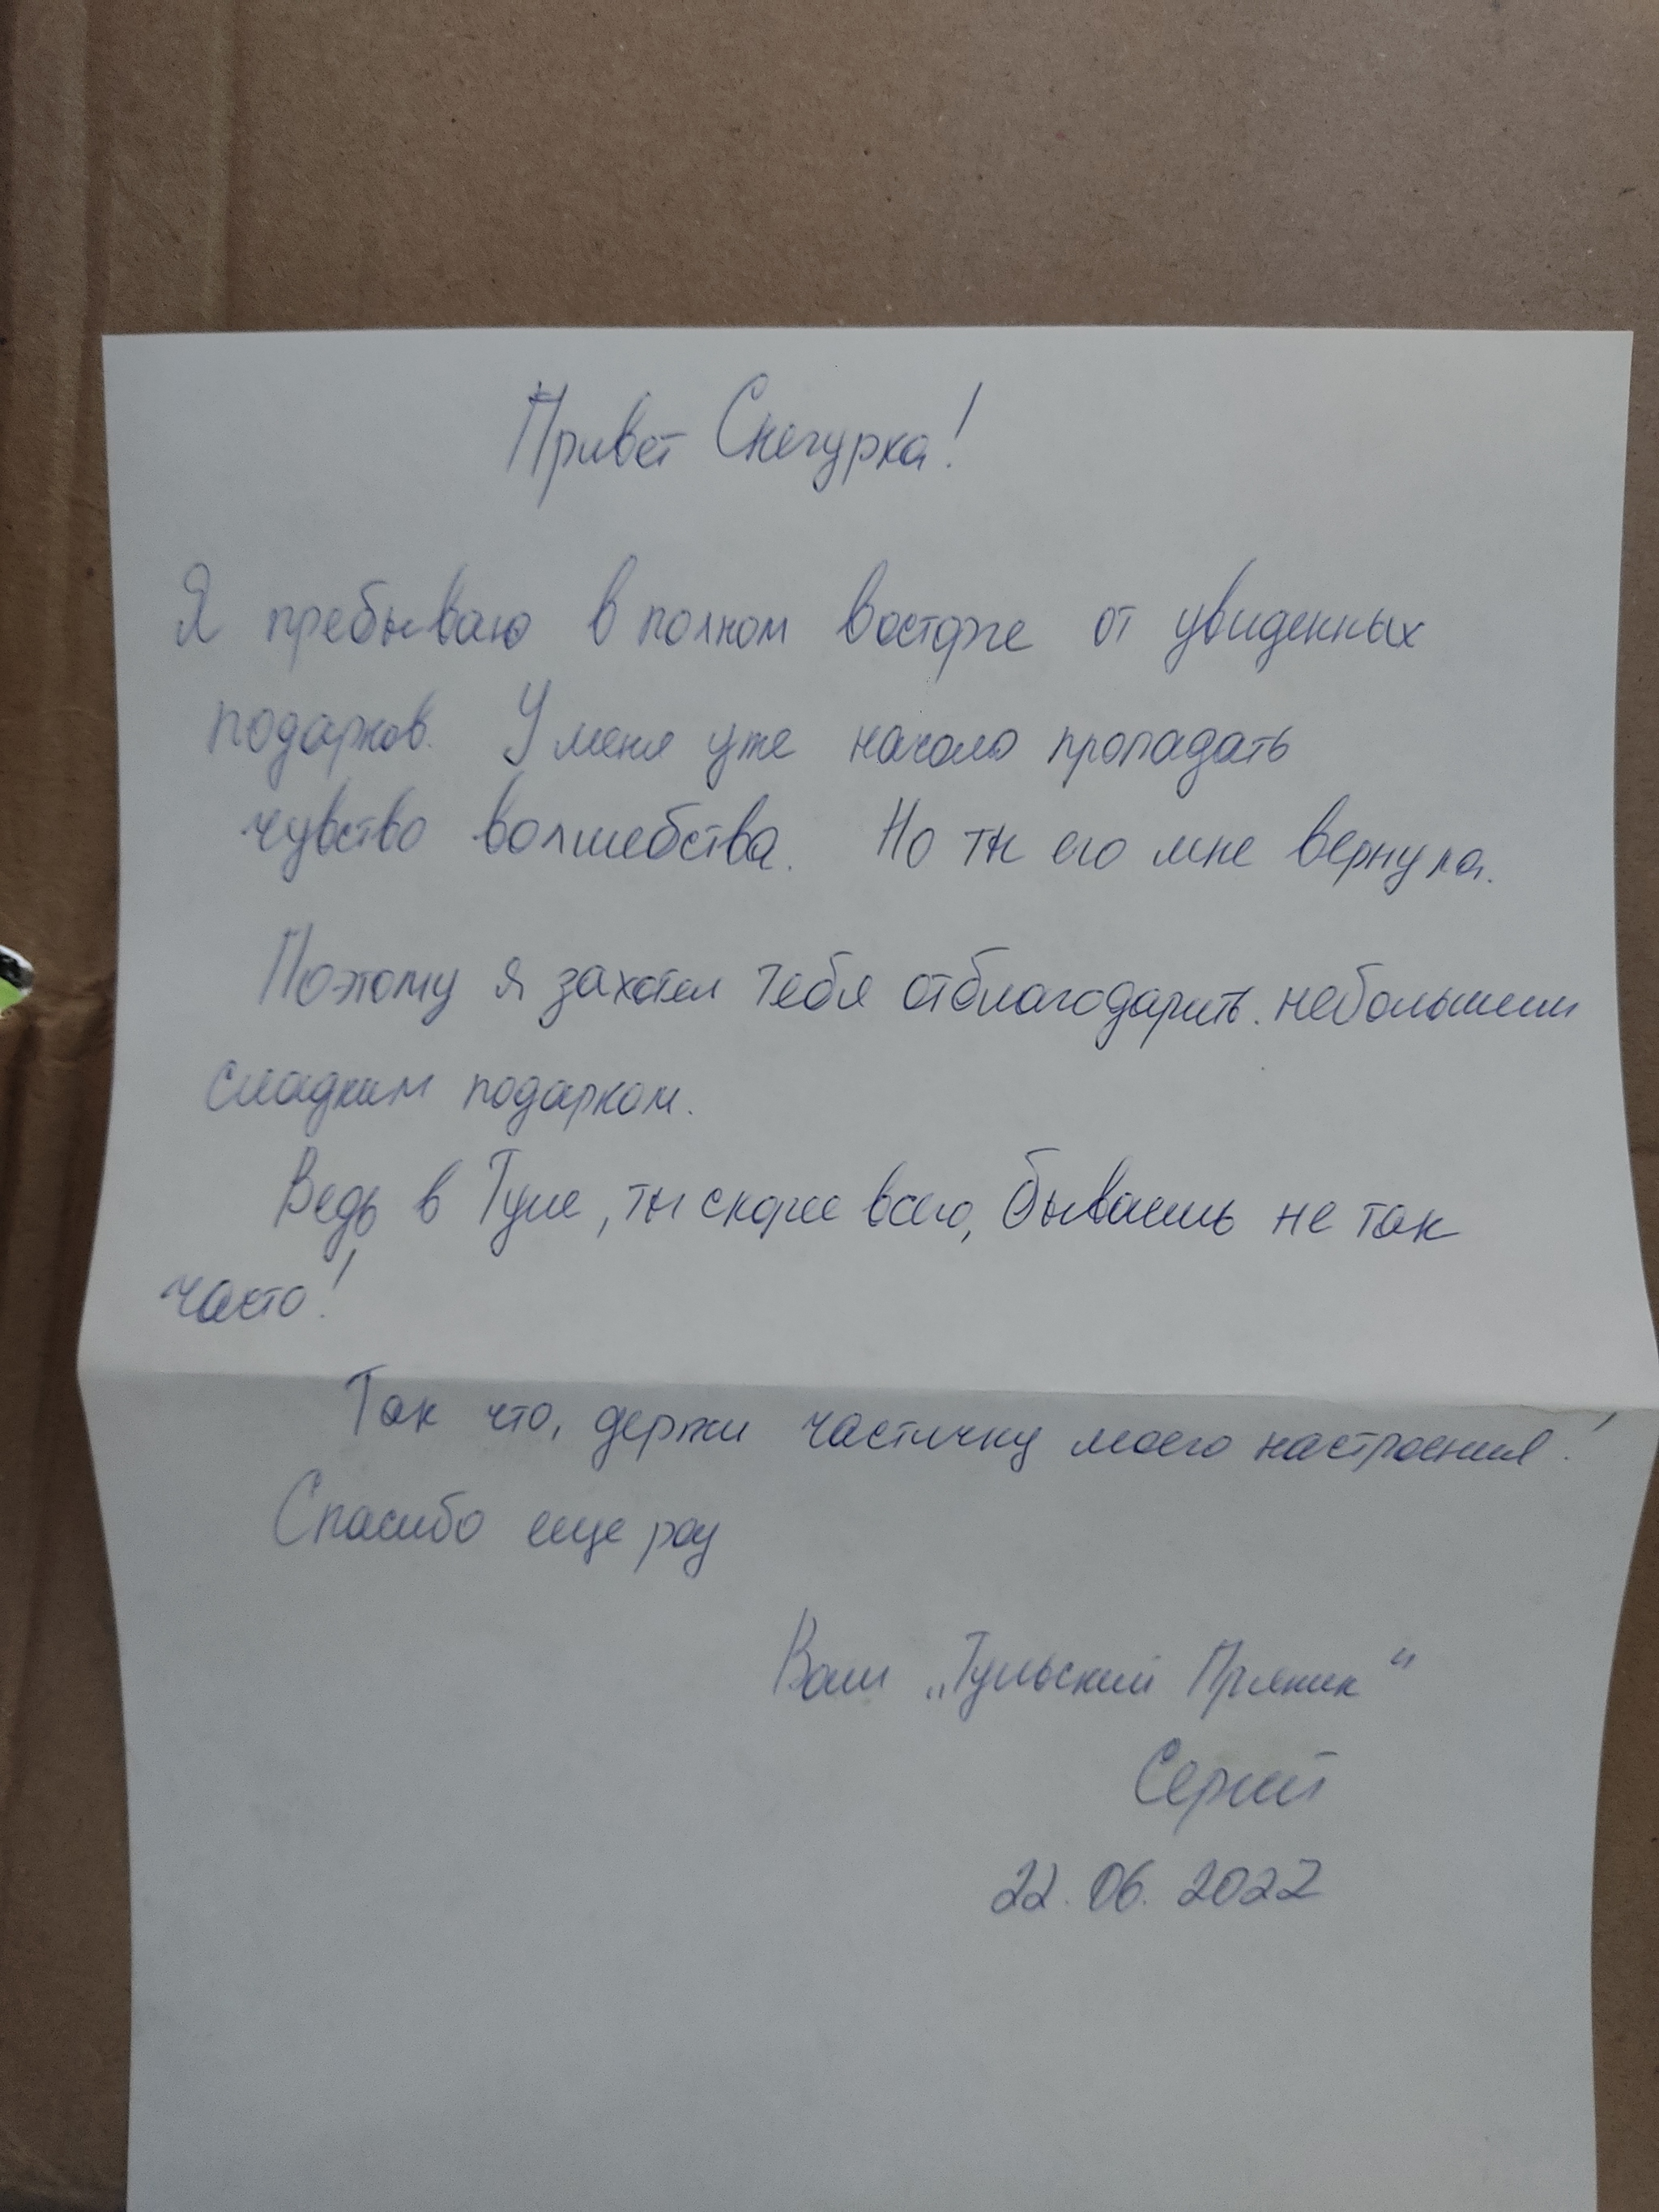 Привет Снегурка!
Я пребываю в полном восторге от увиденных
подарков. У меня уже начало пропадать
чувство волшебства. Но ты его мне вернула.
Поэтому я захотел тебя отблагодарить. небольшим
сладким подарком.
Ведь в Туле, ты скорее всего, бываешь не так
часто!
Так что, держи частичку моего настроения!
Спасибо еще раз
Ваш „Тульский Пряник"
Сергей
22.06.2022